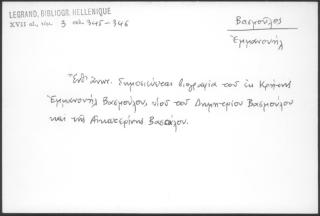 LEGRAND, BIBLIOGR. HELLENIQUE
XVII αἰ., τόμ. 3 σελ. 345-346
Βασμοῦλος
Ἐμμανουήλ
Ἐνθ' ἄνωτ. δημοσιεύεται βιογραφία τοῦ ἐκ Κρήτης
Ἐμμανουήλ Βασμούλου, υἱοῦ τοῦ Δημητρίου Βασμούλου
καί τῆς Αἰκατερίνης Βασμούλου.